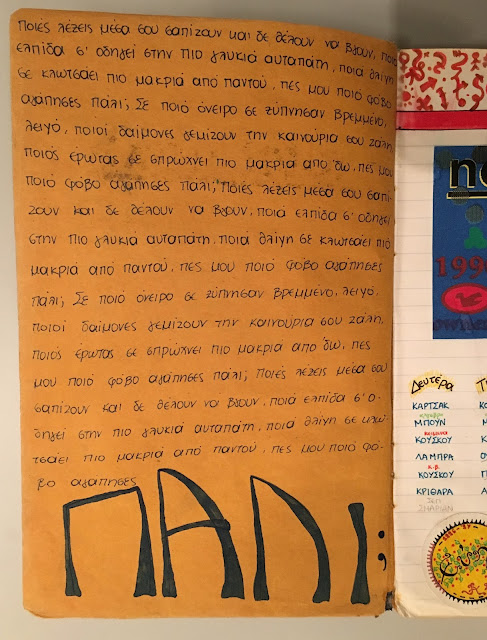 ποιές λέξεις μέσα σου σαπίζουν και δε θέλουν να βγουν, ποιά
ελπίδα σ' οδηγεί στην πιο γλυκιά αυταπάτη, ποιά θλίψη
σε κλωτσάει πιο μακριά από παντού, πες μου ποιό φόβο
αγάπησες πάλι; Σε ποιό όνειρο σε ξύπνησαν βρεμμένο,
λειψό, ποιοί δαίμονες γεμίζουν την καινούρια σου ζάλη,
ποιός έρωτας σε σπρώχνει πιο μακριά από 'δω, πες μου
ποιό φόβο αγάπησες πάλι; Ποιές λέξεις μέσα σου σαπί-
ζουν και δε θέλουν να βγουν, ποιά ελπίδα σ' οδηγεί
στην πιο γλυκιά αυταπάτη, ποιά θλίψη σε κλωτσάει πιο
μακριά από παντού, πες μου ποιό φόβο αγάπησες
πάλι; Σε ποιό όνειρο σε ξύπνησαν βρεμμένο, λειψό,
ποιοί δαίμονες γεμίζουν την καινούρια σου ζάλη,
ποιός έρωτας σε σπρώχνει πιο μακριά απο 'δω, πες
μου ποιό φόβο αγάπησες πάλι; Ποιές λέξεις μέσα σου
σαπίζουν και δε θέλουν να βγουν, ποιά ελπίδα σ' ο-
δηγεί στην πιο γλυκιά αυταπάτη, ποιά θλίψη σε κλω-
τσάει πιο μακριά από παντού, πες μου ποιό φό-
βο αγάπησες
ΠΑΛΙ;
199
Δευτέρα
ΚΑΡΤΣΑΚ
ΜΠΟΥΝ
ΚΟΥΣΚΟΥ
ΛΑΜΠΡΑ
κ.β.
ΚΟΥΣΚΟΥ
ΚΡΙΘΑΡΑ
ΣΑΡΙΑΝ